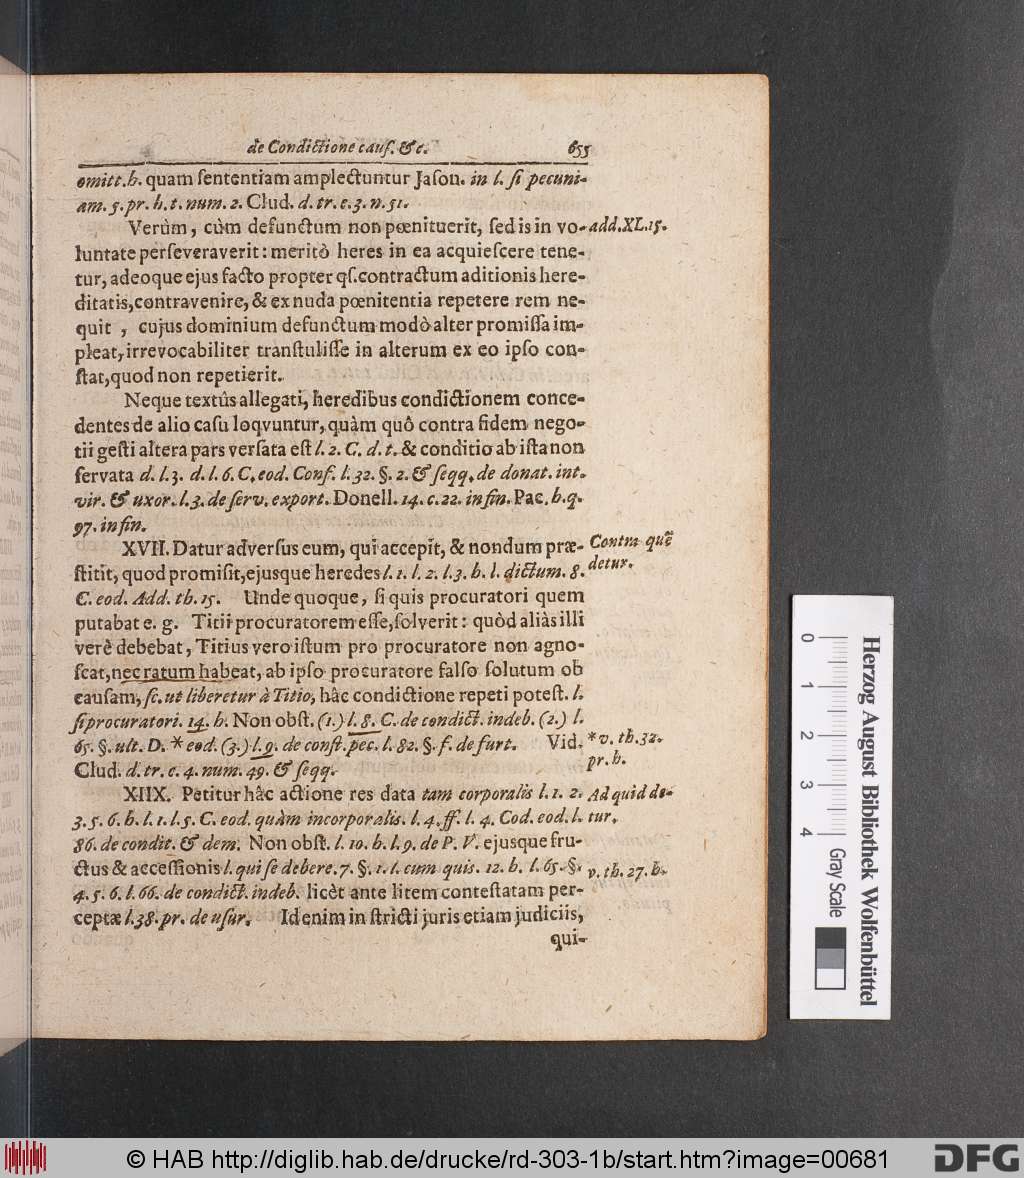 de Condictione cauſ. &c. 655
omitt. h. quam ſententiam amplectuntur Jaſon. in l. ſi pecuni-
am. 5. pr. h. t. num. 2. Clud. d. tr. c. 3. n. 51.
Verùm, cùm defunctum non pœnituerit, ſed is in vo- add. XL. 15.
luntate perſeveraverit: meritò heres in ea acquieſcere tene-
tur, adeoque ejus facto propter qſ. contractum aditionis here-
ditatis, contravenire, & ex nuda pœnitentia repetere rem ne-
quit, cujus dominium defunctum modò alter promiſſa im-
pleat, irrevocabiliter tranſtuliſſe in alterum ex eo ipſo con-
ſtat, quod non repetierit.
Neque textûs allegati, heredibus condictionem conce-
dentes de alio caſu loqvuntur, quàm quô contra fidem nego-
tii geſti altera pars verſata eſt l. 2. C. d. t. & conditio ab iſta non
ſervata d. l. 3. d. l. 6. C. eod. Conf. l. 32. §. 2. & ſeqq. de donat. int.
vir. & uxor. l. 3. de ſerv. export. Donell. 14. c. 22. in fin. Pac. h. q.
97. in fin.
XVII. Datur adverſus eum, qui accepit, & nondum præ- Contra quē
ſtitit, quod promiſit, ejusque heredes l. 1. l. 2. l. 3. h. l. dictum. 8. detur.
C. eod. Add. th. 15. Unde quoque, ſi quis procuratori quem
putabat e. g. Titii procuratorem eſſe, ſolverit: quòd aliàs illi
verè debebat, Titius vero iſtum pro procuratore non agno-
ſcat, nec ratum habeat, ab ipſo procuratore falſo ſolutum ob
cauſam, ſc. ut liberetur à Titio, hâc condictione repeti poteſt. l.
ſi procuratori. 14. h. Non obſt. (1.) l. 8. C. de condict. indeb. (2.) l.
65. §. ult. D. * eod. (3.) l. 9. de conſt. pec. l. 82. §. f. de furt. Vid. * v. th. 32.
Clud. d. tr. c. 4. num. 49. & ſeqq. pr. h.
XIIX. Petitur hâc actione res data tam corporalis l. 1. 2. Ad quid de-
3. 5. 6. h. l. 1. l. 5. C. eod. quàm incorporalis. l. 4. ff. l. 4. Cod. eod. l. tur.
86. de condit. & dem. Non obſt. l. 10. h. l. 9. de P. V. ejusque fru-
ctus & acceſſionis l. qui ſe debere. 7. §. 1. l. cum quis. 12. h. l. 65. §. v. th. 27. h.
4. 5. 6. l. 66. de condict. indeb. licèt ante litem conteſtatam per-
ceptæ l. 38. pr. de uſur. Id enim in ſtricti juris etiam judiciis,
qui-
0 1 2 3 4 Gray Scale
Herzog August Bibliothek Wolfenbüttel
© HAB http://diglib.hab.de/drucke/rd-303-1b/start.htm?image=00681
DFG